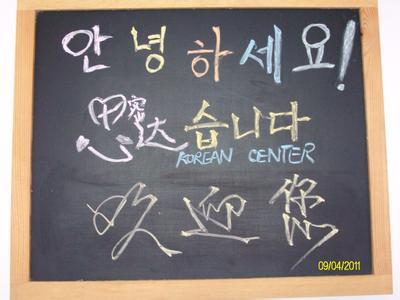 안녕하세요!
思密达 습니다
KOREAN CENTER
欢迎您
09/04/2011